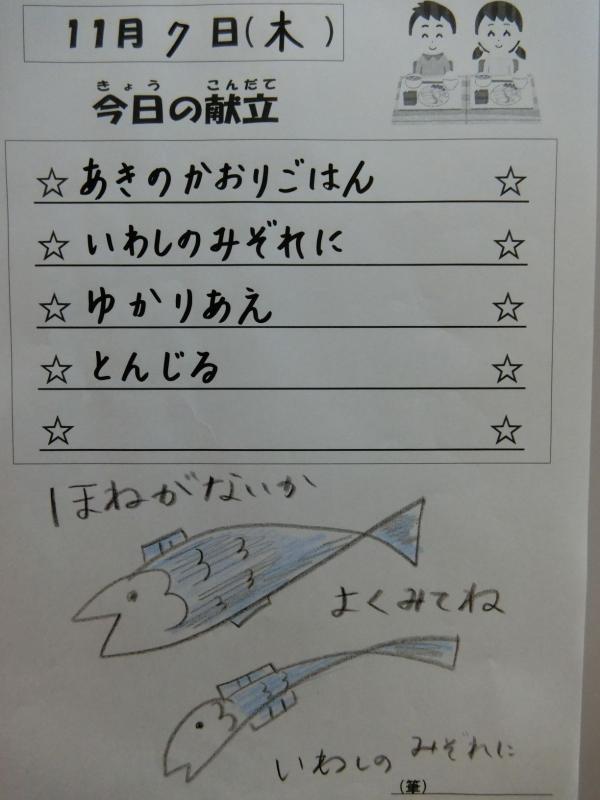 11月7日(木)
きょう こんだて
今日の献立
☆あきのかおりごはん☆
☆いわしのみぞれに☆
☆ゆかりあえ☆
☆とんじる☆
☆☆
ほねがないか
よくみてね
いわしの みぞれに
(筆)